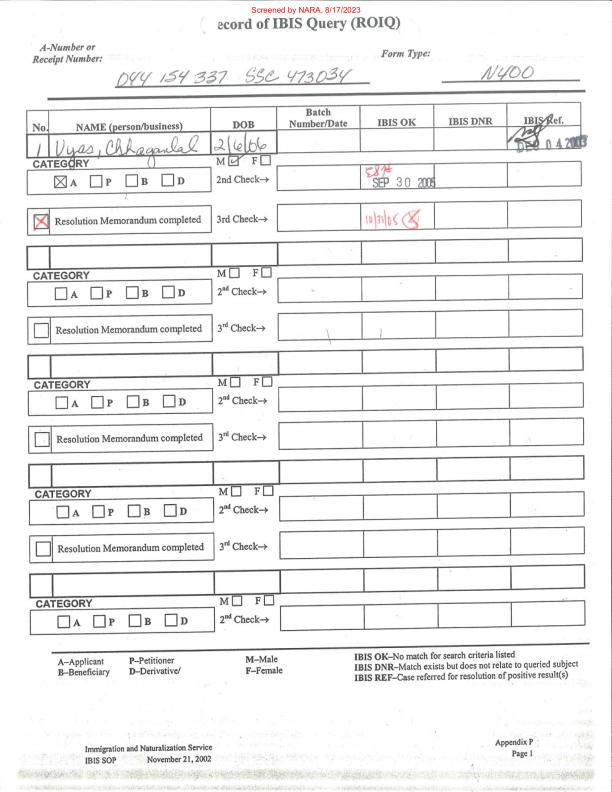 Screened by NARA, 8/17/2023
ecord of IBIS Query (ROIQ)
A-Number or
Receipt Number: 044 154 337 SSC 473034 Form Type: N400
No. NAME (person/business) DOB Batch Number/Date IBIS OK IBIS DNR IBIS Ref.
1 Vyas, Chhaganlal 2/6/06 DEC 04 2003
CATEGORY M F
A P B D 2nd Check→ SEP 30 2005
Resolution Memorandum completed 3rd Check→ 10/31/05
CATEGORY M F
A P B D 2nd Check→
Resolution Memorandum completed 3rd Check→
CATEGORY M F
A P B D 2nd Check→
Resolution Memorandum completed 3rd Check→
CATEGORY M F
A P B D 2nd Check→
Resolution Memorandum completed 3rd Check→
CATEGORY M F
A P B D 2nd Check→
A–Applicant P–Petitioner M–Male IBIS OK–No match for search criteria listed
B–Beneficiary D–Derivative/ F–Female IBIS DNR–Match exists but does not relate to queried subject
IBIS REF–Case referred for resolution of positive result(s)
Immigration and Naturalization Service Appendix P
IBIS SOP November 21, 2002 Page 1